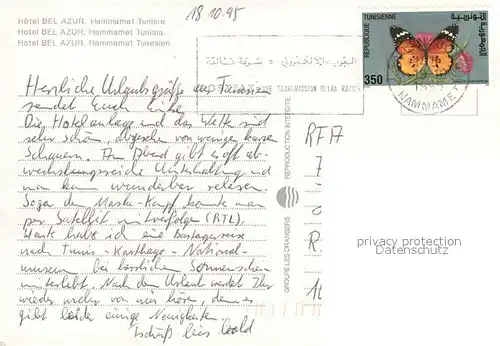 Hôtel BEL AZUR. Hammamet Tunisie.
Hotel BEL AZUR. Hammamet Tunisia.
Hotel BEL AZUR. Hammamet Tunesien.
18.10.95
REPUBLIQUE TUNISIENNE
350
HAMMAME
TRANSMISSION ULTRA RAPIDE
Herzliche Urlaubsgrüße aus Tunesien
sendet Euch
Die Hotelanlage und das Wetter sind
sehr schön, abgesehen von wenigen kurzen
Schauern. Am Abend gibt es oft ab-
wechslungsreiche Unterhaltung und
man kann wunderbar relaxen.
Sogar den Maske-Kampf konnte man
per Satellit mitverfolgen (RTL).
Heute habe ich eine Bustagesreise
nach Tunis - Karthago - National-
museum bei herrlichem Sonnenschein
miterlebt. Nach dem Urlaub werdet Ihr
wieder mehr von mir hören, denn es
gibt leider einige Neuigkeiten.
Tschüß bis bald
REPRODUCTION INTERDITE
GROUPE LES ORANGERS
RFA
7
R.
privacy protection
Datenschutz